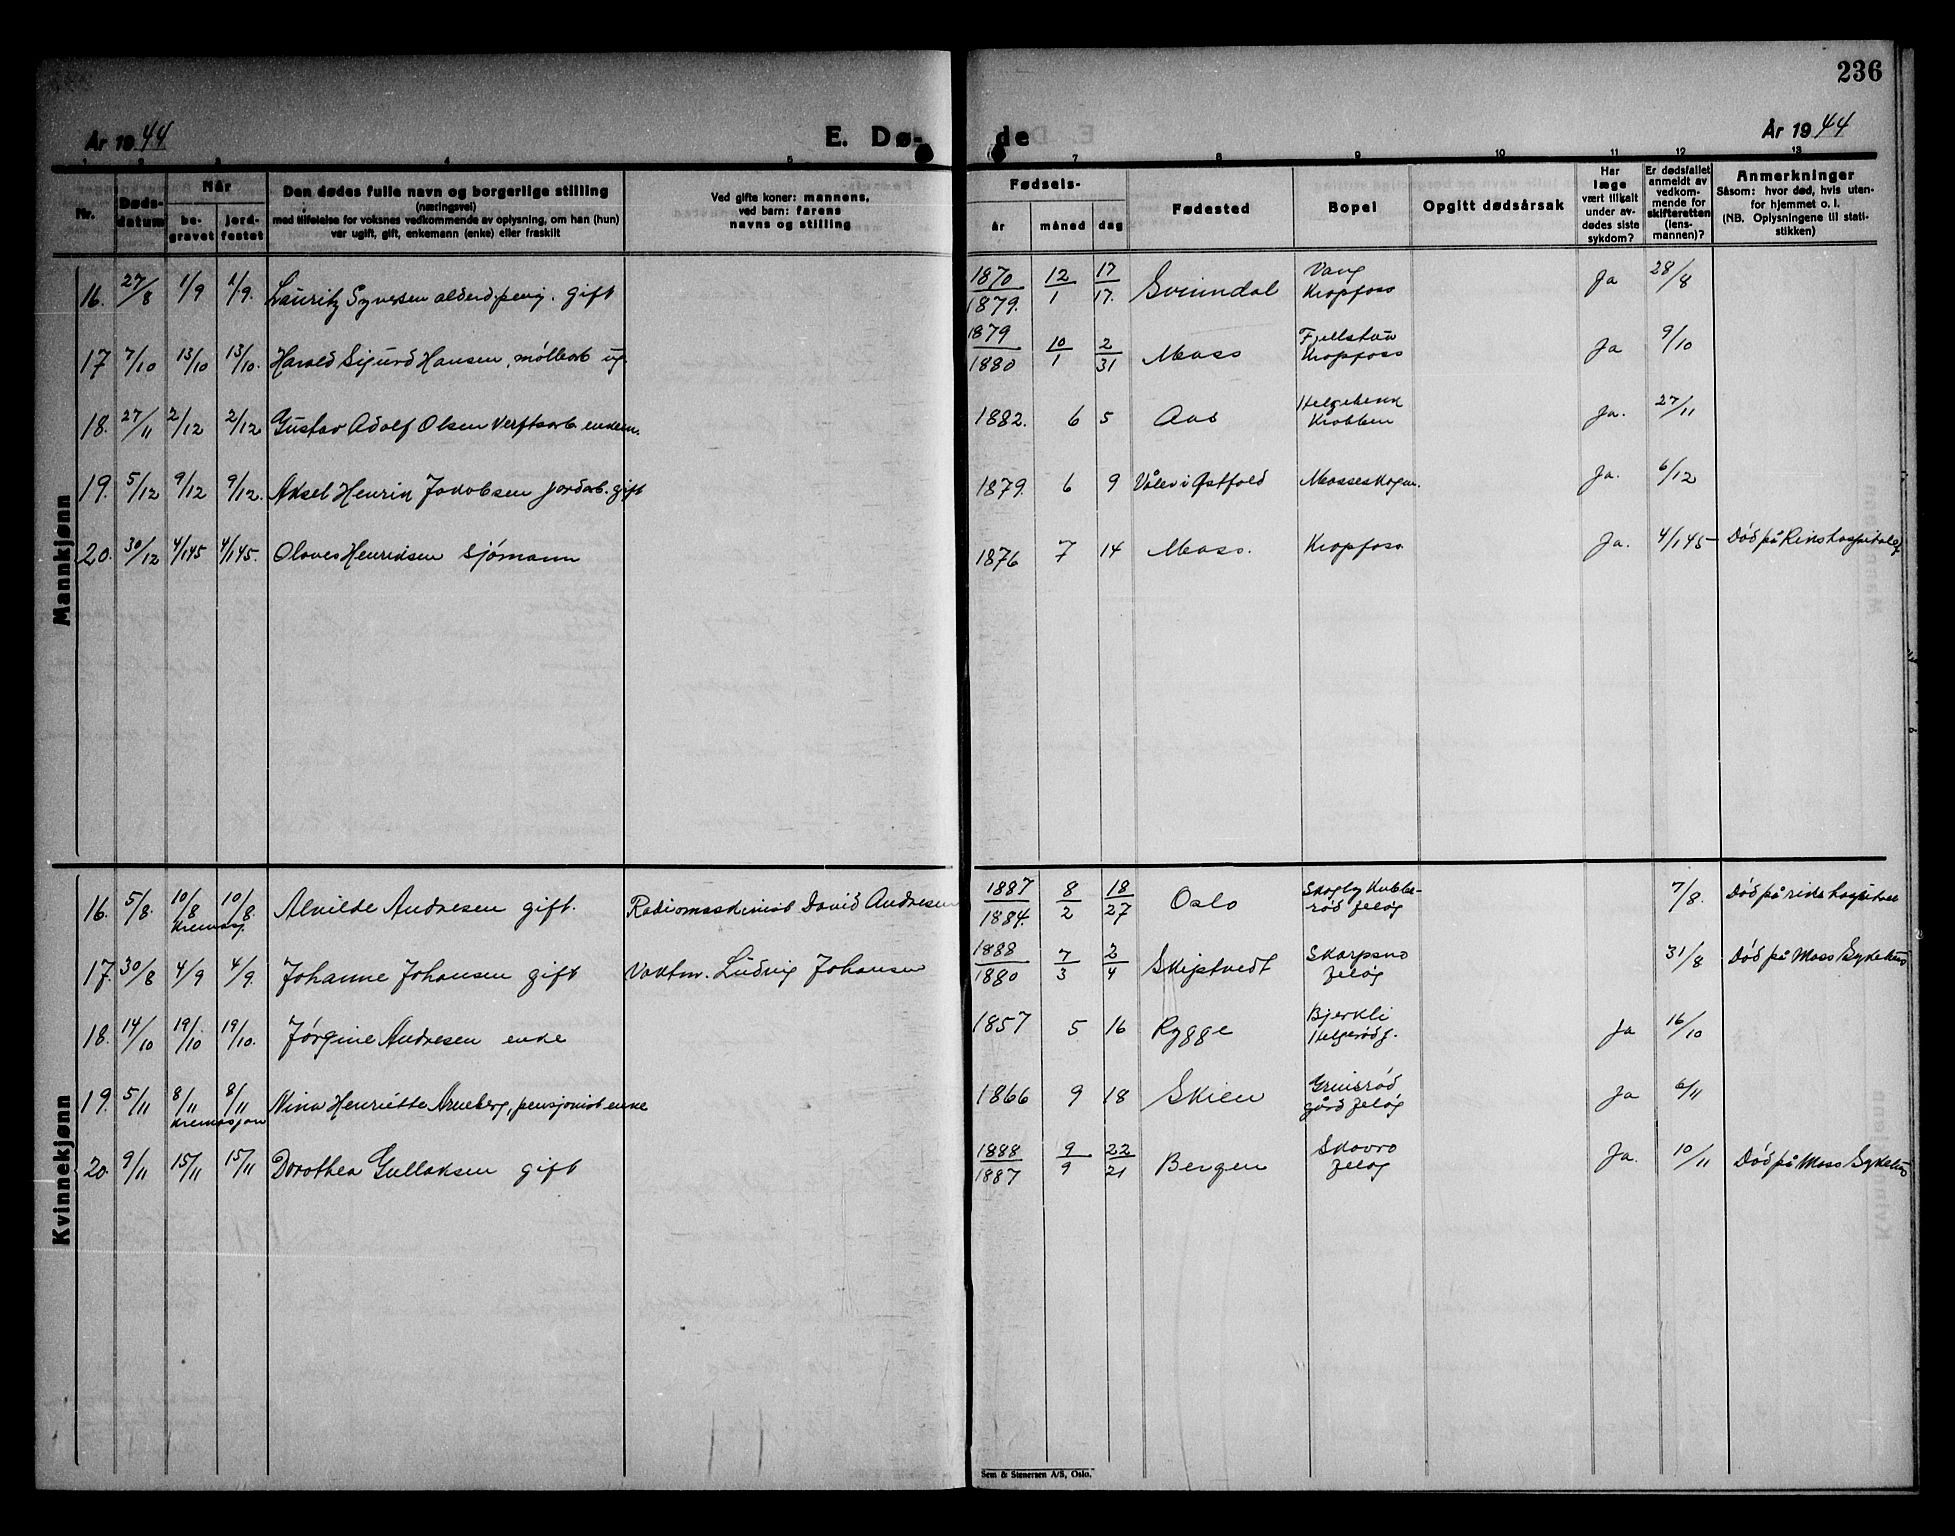 236
År 1944
E. Dø-
de
År 1944
1 2 3 4 5 7 8 9 10 11 12 13
Nr.
Døds-
datum
Når
be-
gravet
jord-
festet
Den dødes fulle navn og borgerlige stilling
(næringsvei)
med tilføielse for voksnes vedkommende av oplysning, om han (hun)
var ugift, gift, enkemann (enke) eller fraskilt
Ved gifte koner: mannens,
ved barn: farens
navns og stilling
Fødsels-
år måned dag
Fødested
Bopel
Opgitt dødsårsak
Har
læge
vært tilkalt
under av-
dødes siste
sykdom?
Er dødsfallet
anmeldt av
vedkom-
mende for
skifteretten
(lens-
mannen)?
Anmerkninger
Såsom: hvor død, hvis uten-
for hjemmet o. l.
(NB. Oplysningene til stati-
stikken)
Mannkjønn
16. 27/8 1/9 1/9. Lauritz Syversen alderdpensj. gift 1870/1879. 12/1 17/17. Svinndal Vang Kropfoss Ja 28/8
17 7/10 13/10 13/10. Harald Sigurd Hansen, møllearb ug. 1879/1880 10/1 2/31 Moss Fjellstua Kropfoss Ja 9/10
18. 27/11 2/12 2/12 Gustav Adolf Olsen Verftsarb enkem. 1882. 6 5 Aas Krabben Ja. 27/11
19. 5/12 9/12 9/12. Aksel Henrik Jakobsen jordarb. gift 1879. 6 9 Våler i Østfold Mosseskogen. Ja. 6/12
20. 30/12 4/1 45 4/1 45. Olaves Henriksen sjømann 1876 7 14 Moss. Kropfoss. Ja. 4/1 45 Død på Rikshospitalet
Kvinnekjønn
16. 5/8. 10/8 10/8. Alvilde Andresen gift. Radiomaskinist David Andresen 1887/1884. 8/2 18/27 Oslo Skogly Kubbe-
rød Jeløy 7/8. Død på rikshospitalet
kremasj.
17. 30/8 4/9 4/9. Johanne Johansen gift Vaktm. Ludvig Johansen 1888/1880 7/3 2/4 Skiptvedt Skarpsno
Jeløy 31/8 Død på Moss Sykehus
18. 14/10 19/10 19/10. Jørgine Andresen enke 1857 5 16 Rygge Bjerkli
Helgerød J. Ja 16/10
19. 5/11 8/11 8/11 Nina Henriette Arneberg, pensjonist enke 1866 9 18 Skien Grimsrød
gård Jeløy Ja 6/11
kremasjon
20. 9/11 15/11 15/11 Dorothea Gullaksen gift 1888/1887 9/9 22/21 Bergen Skovro
Jeløy Ja. 10/11 Død på Moss Sykehus
Sem & Stenersen A/S, Oslo.